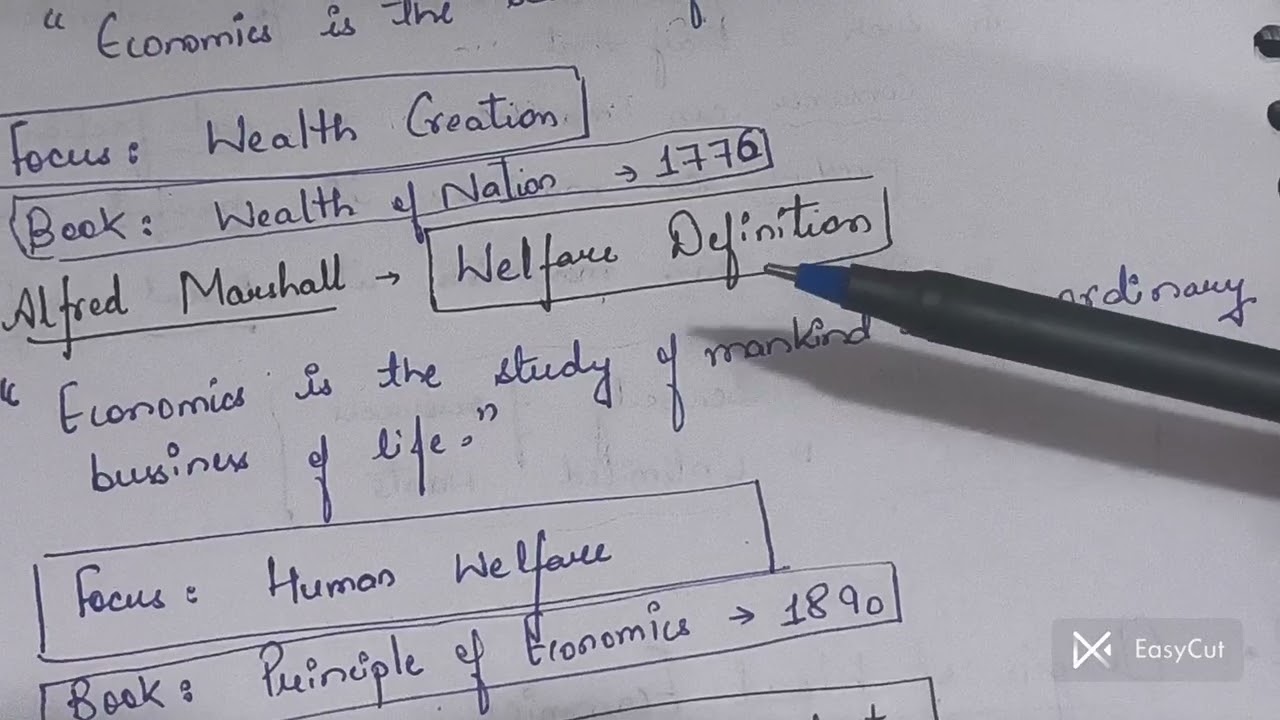 “ Economics is the
Focus: Wealth Creation
Book: Wealth of Nation → 1776
Alfred Marshall → Welfare Definition
“ Economics is the study of mankind ordinary
bussiness of life.”
Focus: Human Welfare
Book: Principle of Economics → 1890
EasyCut